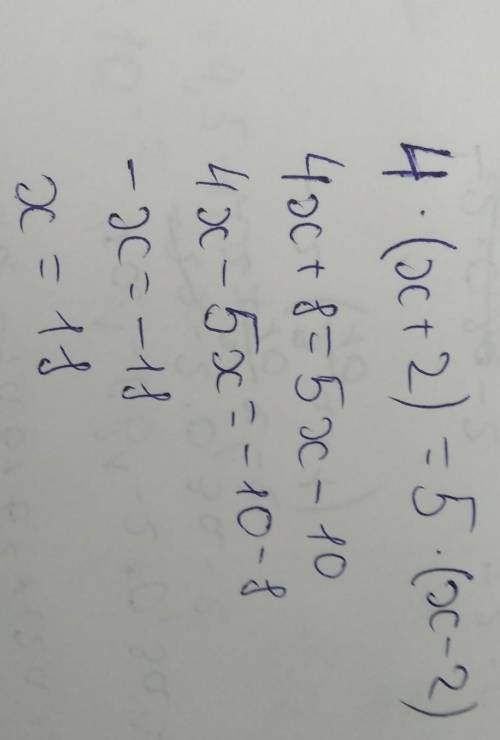 4 · (x + 2) = 5 · (x - 2)
4x + 8 = 5x - 10
4x - 5x = -10 - 8
-x = -18
x = 18